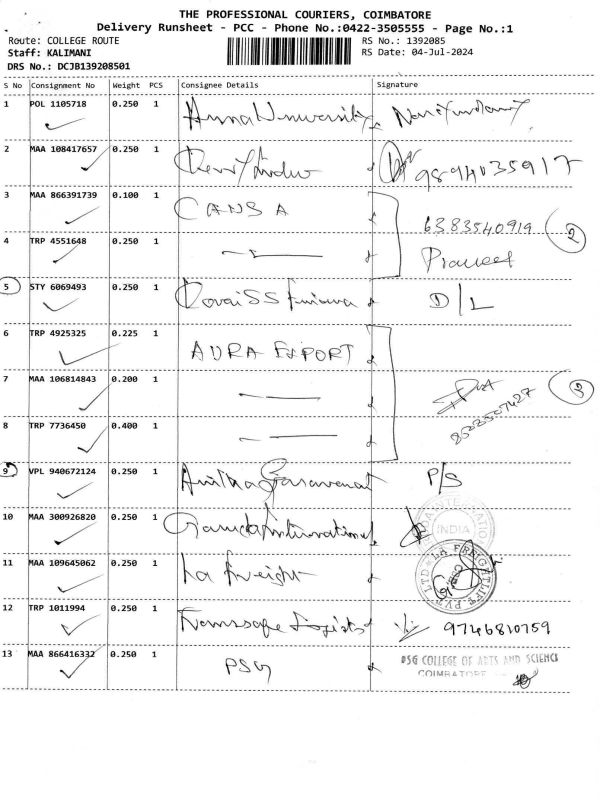 THE PROFESSIONAL COURIERS, COIMBATORE
Delivery Runsheet - PCC - Phone No.:0422-3505555 - Page No.:1
Route: COLLEGE ROUTE RS No.: 1392085
Staff: KALIMANI RS Date: 04-Jul-2024
DRS No.: DCJB139208501
S No Consignment No Weight PCS Consignee Details Signature
1 POL 1105718 0.250 1 Anna University
2 MAA 108417657 0.250 1 9894035917
3 MAA 866391739 0.100 1 CANSA
6383540919 2
4 TRP 4551648 0.250 1 Praneet
5 STY 6069493 0.250 1 Kovai SS D/L
6 TRP 4925325 0.225 1 AURA EXPORT
7 MAA 106814843 0.200 1 3
8 TRP 7736450 0.400 1
9 VPL 940672124 0.250 1 Anitha Saravanan P/S
10 MAA 300926820 0.250 1 Garuda International INDIA
11 MAA 109645062 0.250 1 La freight LA FREIGHTLIFT PVT LTD
12 TRP 1011994 0.250 1 9746810759
13 MAA 866416332 0.250 1 PSG PSG COLLEGE OF ARTS AND SCIENCE
COIMBATORE